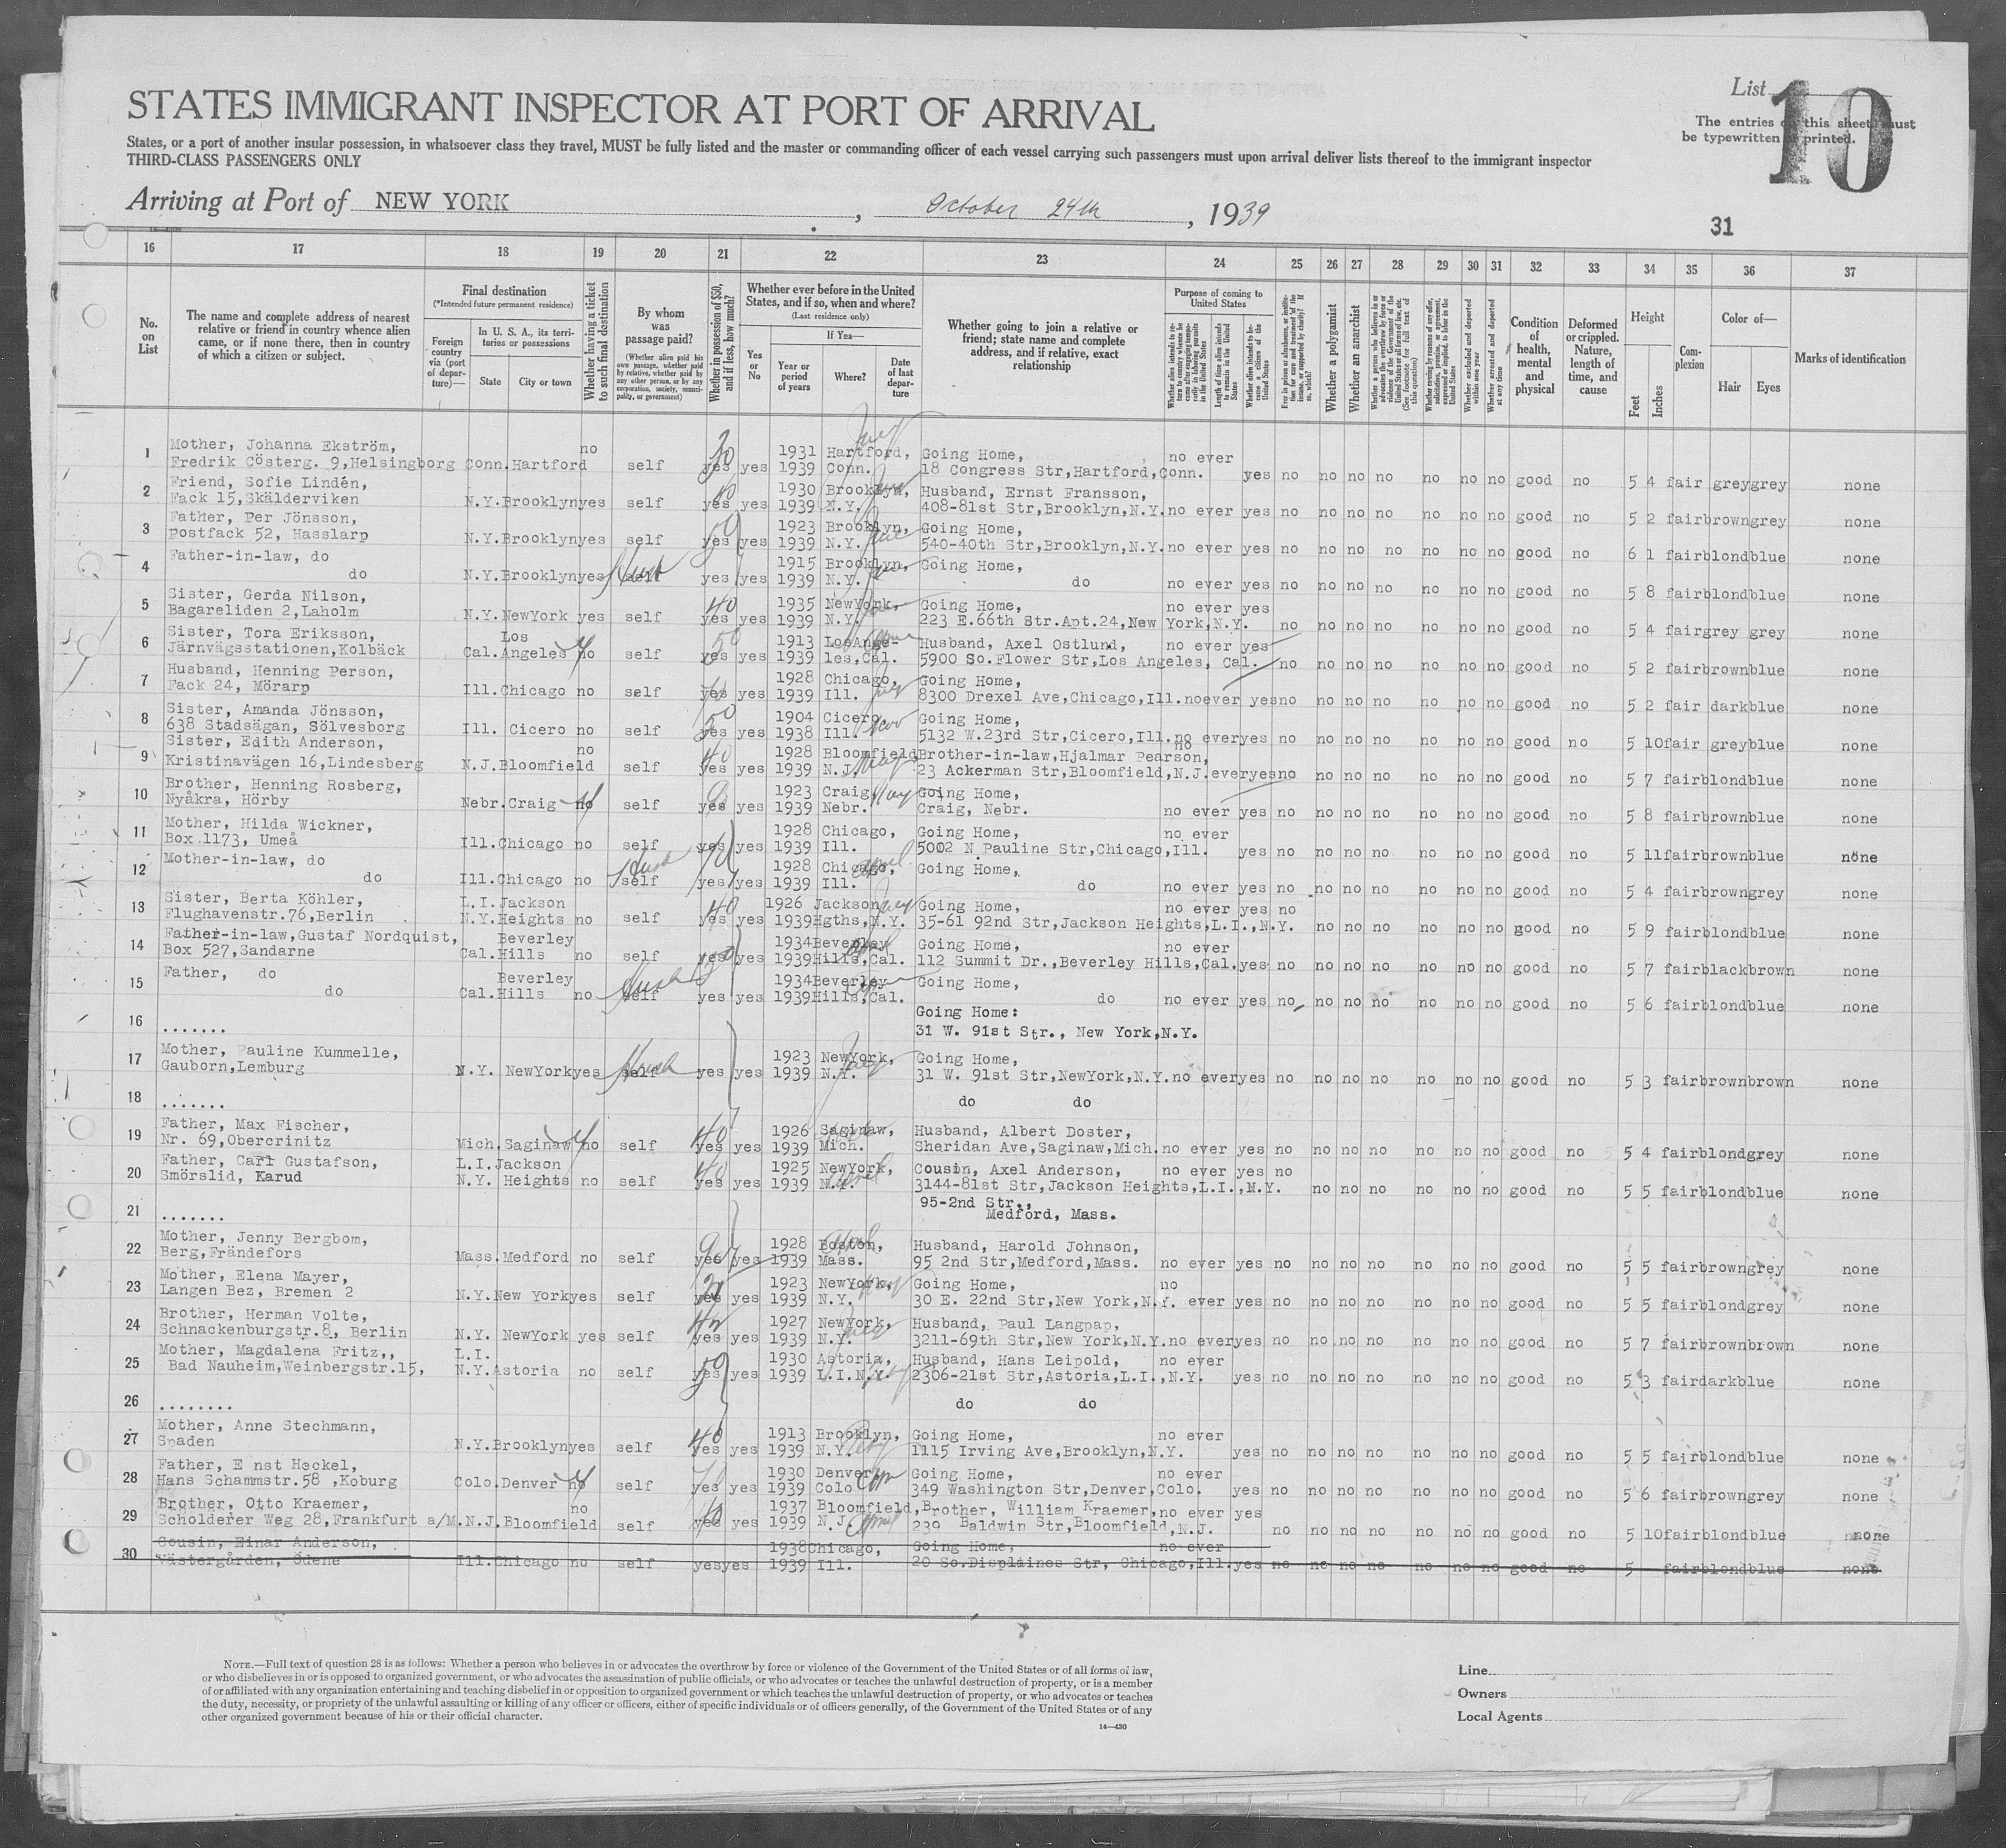 List
10
The entries on this sheet must
be typewritten or printed.
STATES IMMIGRANT INSPECTOR AT PORT OF ARRIVAL
States, or a port of another insular possession, in whatsoever class they travel, MUST be fully listed and the master or commanding officer of each vessel carrying such passengers must upon arrival deliver lists thereof to the immigrant inspector
THIRD-CLASS PASSENGERS ONLY
Arriving at Port of NEW YORK, October 24th, 1939
31
16 17 18 19 20 21 22 23 24 25 26 27 28 29 30 31 32 33 34 35 36 37
No. on List
The name and complete address of nearest relative or friend in country whence alien came, or if none there, then in country of which a citizen or subject.
Final destination
(*Intended future permanent residence)
Foreign country via (port of departure)—
In U. S. A., its territories or possessions
State
City or town
Whether having a ticket to such final destination
By whom was passage paid?
(Whether alien paid his own passage, whether paid by relative, whether paid by any other person, or by any corporation, society, municipality, or government)
Whether in possession of $50, and if less, how much?
Whether ever before in the United States, and if so, when and where?
(Last residence only)
Yes or No
If Yes—
Year or period of years
Where?
Date of last departure
Whether going to join a relative or friend; state name and complete address, and if relative, exact relationship
Purpose of coming to United States
Length of time alien intends to remain in the United States
Whether alien intends to become a citizen of the United States
Whether a polygamist
Whether an anarchist
(See footnote for full text of this question)
Whether excluded and deported within one year
Whether arrested and deported at any time
Condition of health, mental and physical
Deformed or crippled. Nature, length of time, and cause
Height
Feet
Inches
Complexion
Color of—
Hair
Eyes
Marks of identification
1 Mother, Johanna Ekström, no 30 1931 Hartford, Going Home, no ever
Fredrik Cösterg. 9,Helsingborg Conn.Hartford self yes yes 1939 Conn. 18 Congress Str,Hartford,Conn. yes no no no no no no no good no 5 4 fair grey grey none
2 Friend, Sofie Lindén, 1930 Brooklyn, Husband, Ernst Fransson,
Fack 15,Skälderviken N.Y.Brooklyn yes self yes yes 1939 N.Y. 408-81st Str,Brooklyn,N.Y. no ever yes no no no no no no no good no 5 2 fair brown grey none
3 Father, Per Jönsson, 50 1923 Brooklyn, Going Home,
Postfack 52, Hasslarp N.Y.Brooklyn yes self yes yes 1939 N.Y. 540-40th Str,Brooklyn,N.Y. no ever yes no no no no no no no good no 6 1 fair blond blue none
4 Father-in-law, do 1915 Brooklyn, Going Home,
do N.Y.Brooklyn yes self Husb yes yes 1939 N.Y. do no ever yes no no no no no no no good no 5 8 fair blond blue none
5 Sister, Gerda Nilson, 40 1935 NewYork, Going Home, no ever yes
Bagareliden 2,Laholm N.Y.NewYork yes self yes yes 1939 N.Y. 223 E.66th Str.Apt.24,New York,N.Y. no no no no no no no good no 5 4 fair grey grey none
6 Sister, Tora Eriksson, Los 50 1913 LosAnge- Husband, Axel Ostlund, no ever yes
Järnvägsstationen,Kolbäck Cal.Angeles no self yes yes 1939 les,Cal. 5900 So.Flower Str,Los Angeles, Cal. no no no no no no no good no 5 2 fair brown blue none
7 Husband, Henning Person, 1928 Chicago, Going Home,
Fack 24, Mörarp Ill.Chicago no self yes yes 1939 Ill. 8300 Drexel Ave,Chicago,Ill. no ever yes no no no no no no no good no 5 2 fair dark blue none
8 Sister, Amanda Jönsson, 50 1904 Cicero Nov Going Home,
638 Stadsägan, Sölvesborg Ill. Cicero no self yes yes 1938 Ill. 5132 W.23rd Str,Cicero,Ill. no ever yes no no no no no no no good no 5 10 fair grey blue none
9 Sister, Edith Anderson, no 40 1928 Bloomfield, Brother-in-law,Hjalmar Pearson, no
Kristinavägen 16,Lindesberg N.J.Bloomfield self yes yes 1939 N.J. 23 Ackerman Str,Bloomfield,N.J. ever yes no no no no no no no good no 5 7 fair blond blue none
10 Brother, Henning Rosberg, 1923 Craig, May Going Home,
Nyåkra, Hörby Nebr.Craig no self yes yes 1939 Nebr. Craig, Nebr. no ever yes no no no no no no no good no 5 8 fair brown blue none
11 Mother, Hilda Wickner, 1928 Chicago, Going Home, no ever
Box 1173, Umeå Ill.Chicago no self yes yes 1939 Ill. 5002 N Pauline Str,Chicago,Ill. yes no no no no no no no good no 5 11 fair brown blue none
12 Mother-in-law, do Husb 1928 Chicago, April Going Home,
do Ill.Chicago no self yes yes 1939 Ill. do no ever yes no no no no no no no good no 5 4 fair brown grey none
13 Sister, Berta Köhler, L.I.Jackson 40 1926 Jackson Going Home, no ever yes no
Flughavenstr.76,Berlin N.Y.Heights no self yes yes 1939 Hgths,N.Y. 35-61 92nd Str,Jackson Heights,L.I.,N.Y. no no no no no no good no 5 9 fair blond blue none
14 Father-in-law,Gustaf Nordquist, Beverley 1934 Beverley Going Home, no ever
Box 527,Sandarne Cal.Hills no self yes yes 1939 Hills,Cal. 112 Summit Dr.,Beverley Hills,Cal. yes no no no no no no no good no 5 7 fair black brown none
15 Father, do Beverley 1934 Beverley Going Home,
do Cal.Hills no self Husb yes yes 1939 Hills,Cal. do no ever yes no no no no no no no good no 5 6 fair blond blue none
16 ....... Going Home:
31 W. 91st Str., New York,N.Y.
17 Mother, Pauline Kummelle, 1923 NewYork, Going Home,
Gauborn,Lemburg N.Y. NewYork yes self Husb yes yes 1939 N.Y. 31 W. 91st Str,NewYork,N.Y. no ever yes no no no no no no no good no 5 3 fair brown brown none
18 ....... do do
19 Father, Max Fischer, 40 1926 Saginaw, Husband, Albert Doster,
Nr. 69,Obercrinitz Mich.Saginaw no self yes yes 1939 Mich. Sheridan Ave,Saginaw,Mich. no ever yes no no no no no no no good no 5 4 fair blond grey none
20 Father, Carl Gustafson, L.I.Jackson 40 1925 NewYork, Cousin, Axel Anderson, no ever yes no
Smörslid, Karud N.Y. Heights no self yes yes 1939 N.Y. 3144-81st Str,Jackson Heights,L.I.,N.Y. no no no no no no good no 5 5 fair blond blue none
21 ....... 95-2nd Str.,
Medford, Mass.
22 Mother, Jenny Bergbom, 1928 Boston, Husband, Harold Johnson,
Berg,Frändefors Mass.Medford no self yes yes 1939 Mass. 95 2nd Str,Medford,Mass. no ever yes no no no no no no no good no 5 5 fair brown grey none
23 Mother, Elena Mayer, 1923 NewYork, Going Home, no
Langen Bez, Bremen 2 N.Y.New York yes self yes yes 1939 N.Y. 30 E. 22nd Str,New York,N.Y. ever yes no no no no no no no good no 5 5 fair blond grey none
24 Brother, Herman Volte, 1927 NewYork, Husband, Paul Langpap,
Schnackenburgstr.8, Berlin N.Y. NewYork yes self yes yes 1939 N.Y. 3211-69th Str,New York,N.Y. no ever yes no no no no no no no good no 5 7 fair brown brown none
25 Mother, Magdalena Fritz,, L.I. 50 1930 Astoria, Husband, Hans Leipold, no ever
Bad Nauheim,Weinbergstr.15, N.Y.Astoria no self yes yes 1939 L.I.N.Y. 2306-21st Str,Astoria,L.I.,N.Y. yes no no no no no no no good no 5 3 fair dark blue none
26 ........ do do
27 Mother, Anne Stechmann, 40 1913 Brooklyn, Going Home, no ever
Spaden N.Y.Brooklyn yes self yes yes 1939 N.Y. 1115 Irving Ave,Brooklyn,N.Y. yes no no no no no no no good no 5 5 fair blond blue none
28 Father, E nst Heckel, 1930 Denver, Going Home, no ever
Hans Schammstr.58 ,Koburg Colo.Denver no self yes yes 1939 Colo 349 Washington Str,Denver,Colo. yes no no no no no no no good no 5 6 fair brown grey none
29 Brother, Otto Kraemer, no 1937 Bloomfield, Brother, William Kraemer, no ever yes
Scholderer Weg 28,Frankfurt a/M. N.J.Bloomfield self yes yes 1939 N.J. April 239 Baldwin Str,Bloomfield,N.J. no no no no no no no good no 5 10 fair blond blue none
30 Cousin, Einar Anderson, 1938 Chicago, Going Home, no ever
Västergården, Ödene Ill.Chicago no self yes yes 1939 Ill. 20 So.Displaines Str, Chicago,Ill. yes no no no no no no no good no 5 fair blond blue none
NOTE.—Full text of question 28 is as follows: Whether a person who believes in or advocates the overthrow by force or violence of the Government of the United States or of all forms of law,
or who disbelieves in or is opposed to organized government, or who advocates the assassination of public officials, or who advocates or teaches the unlawful destruction of property, or is a member
of or affiliated with any organization entertaining and teaching disbelief in or opposition to organized government or which teaches the unlawful destruction of property, or who advocates or teaches
the duty, necessity, or propriety of the unlawful assaulting or killing of any officer or officers, either of specific individuals or of officers generally, of the Government of the United States or of any
other organized government because of his or their official character.
14—430
Line
Owners
Local Agents